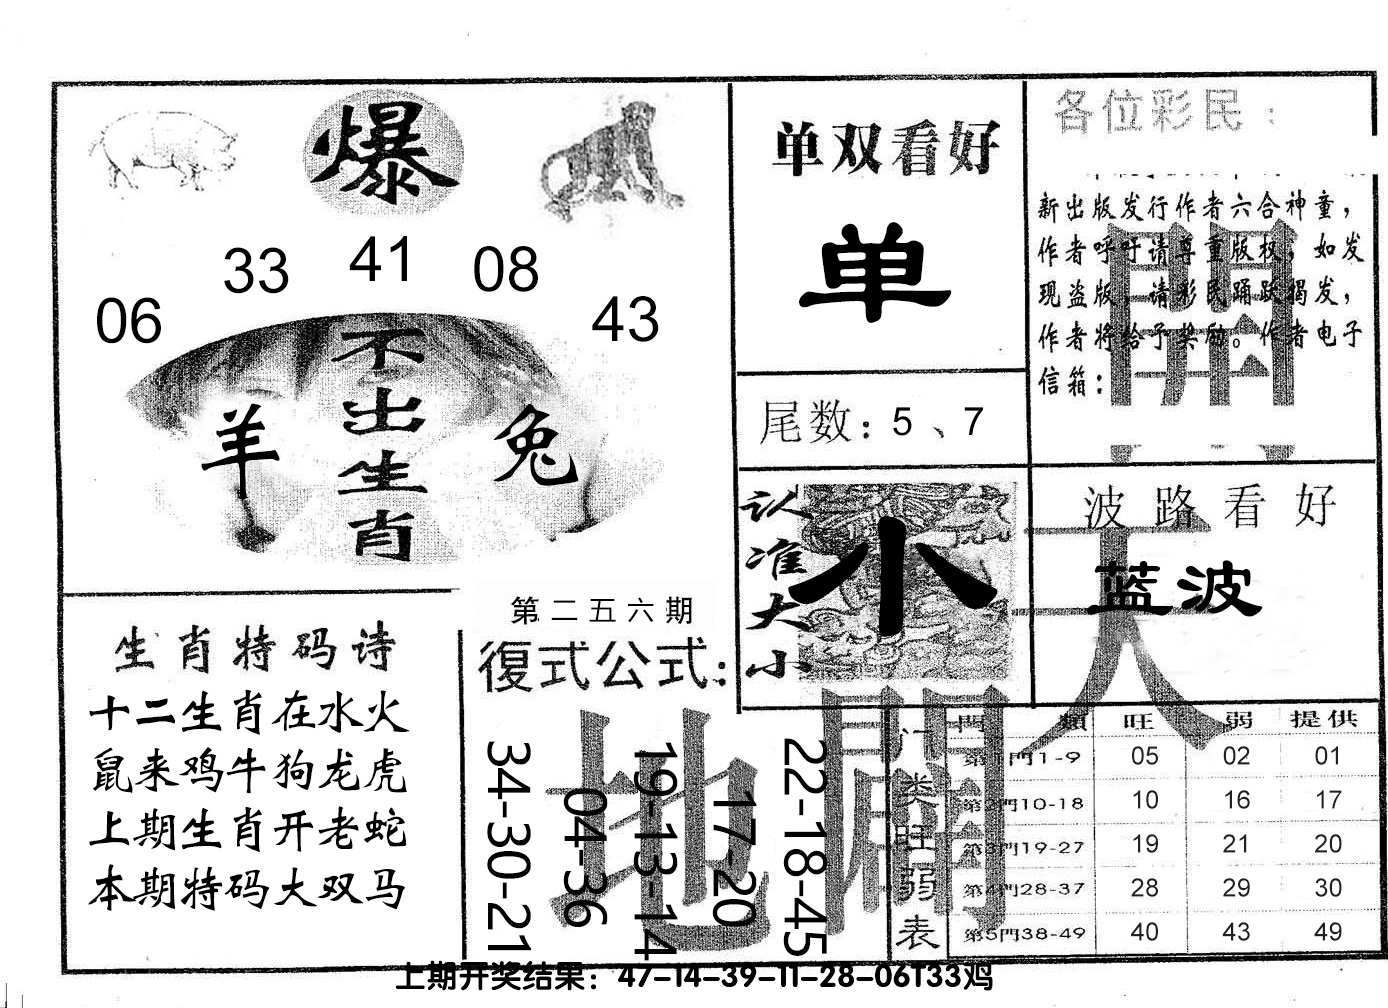 爆
33 41 08
06 43
不出生肖
羊 兔
单双看好
单
尾数：5、7
各位彩民：
新出版发行作者六合神童，
作者呼吁请尊重版权，如发
现盗版，请彩民踊跃揭发，
作者将给予奖励。作者电子
信箱：
認准大小
小
波路看好
蓝波
天
生肖特码诗
十二生肖在水火
鼠来鸡牛狗龙虎
上期生肖开老蛇
本期特码大双马
第二五六期
復式公式：
34-30-21
04-36
19-13-14
17-20
22-18-45
地
门类旺弱表
門類 旺 弱 提供
第1門1-9 05 02 01
第2門10-18 10 16 17
第3門19-27 19 21 20
第4門28-37 28 29 30
第5門38-49 40 43 49
上期开奖结果：47-14-39-11-28-06T33鸡